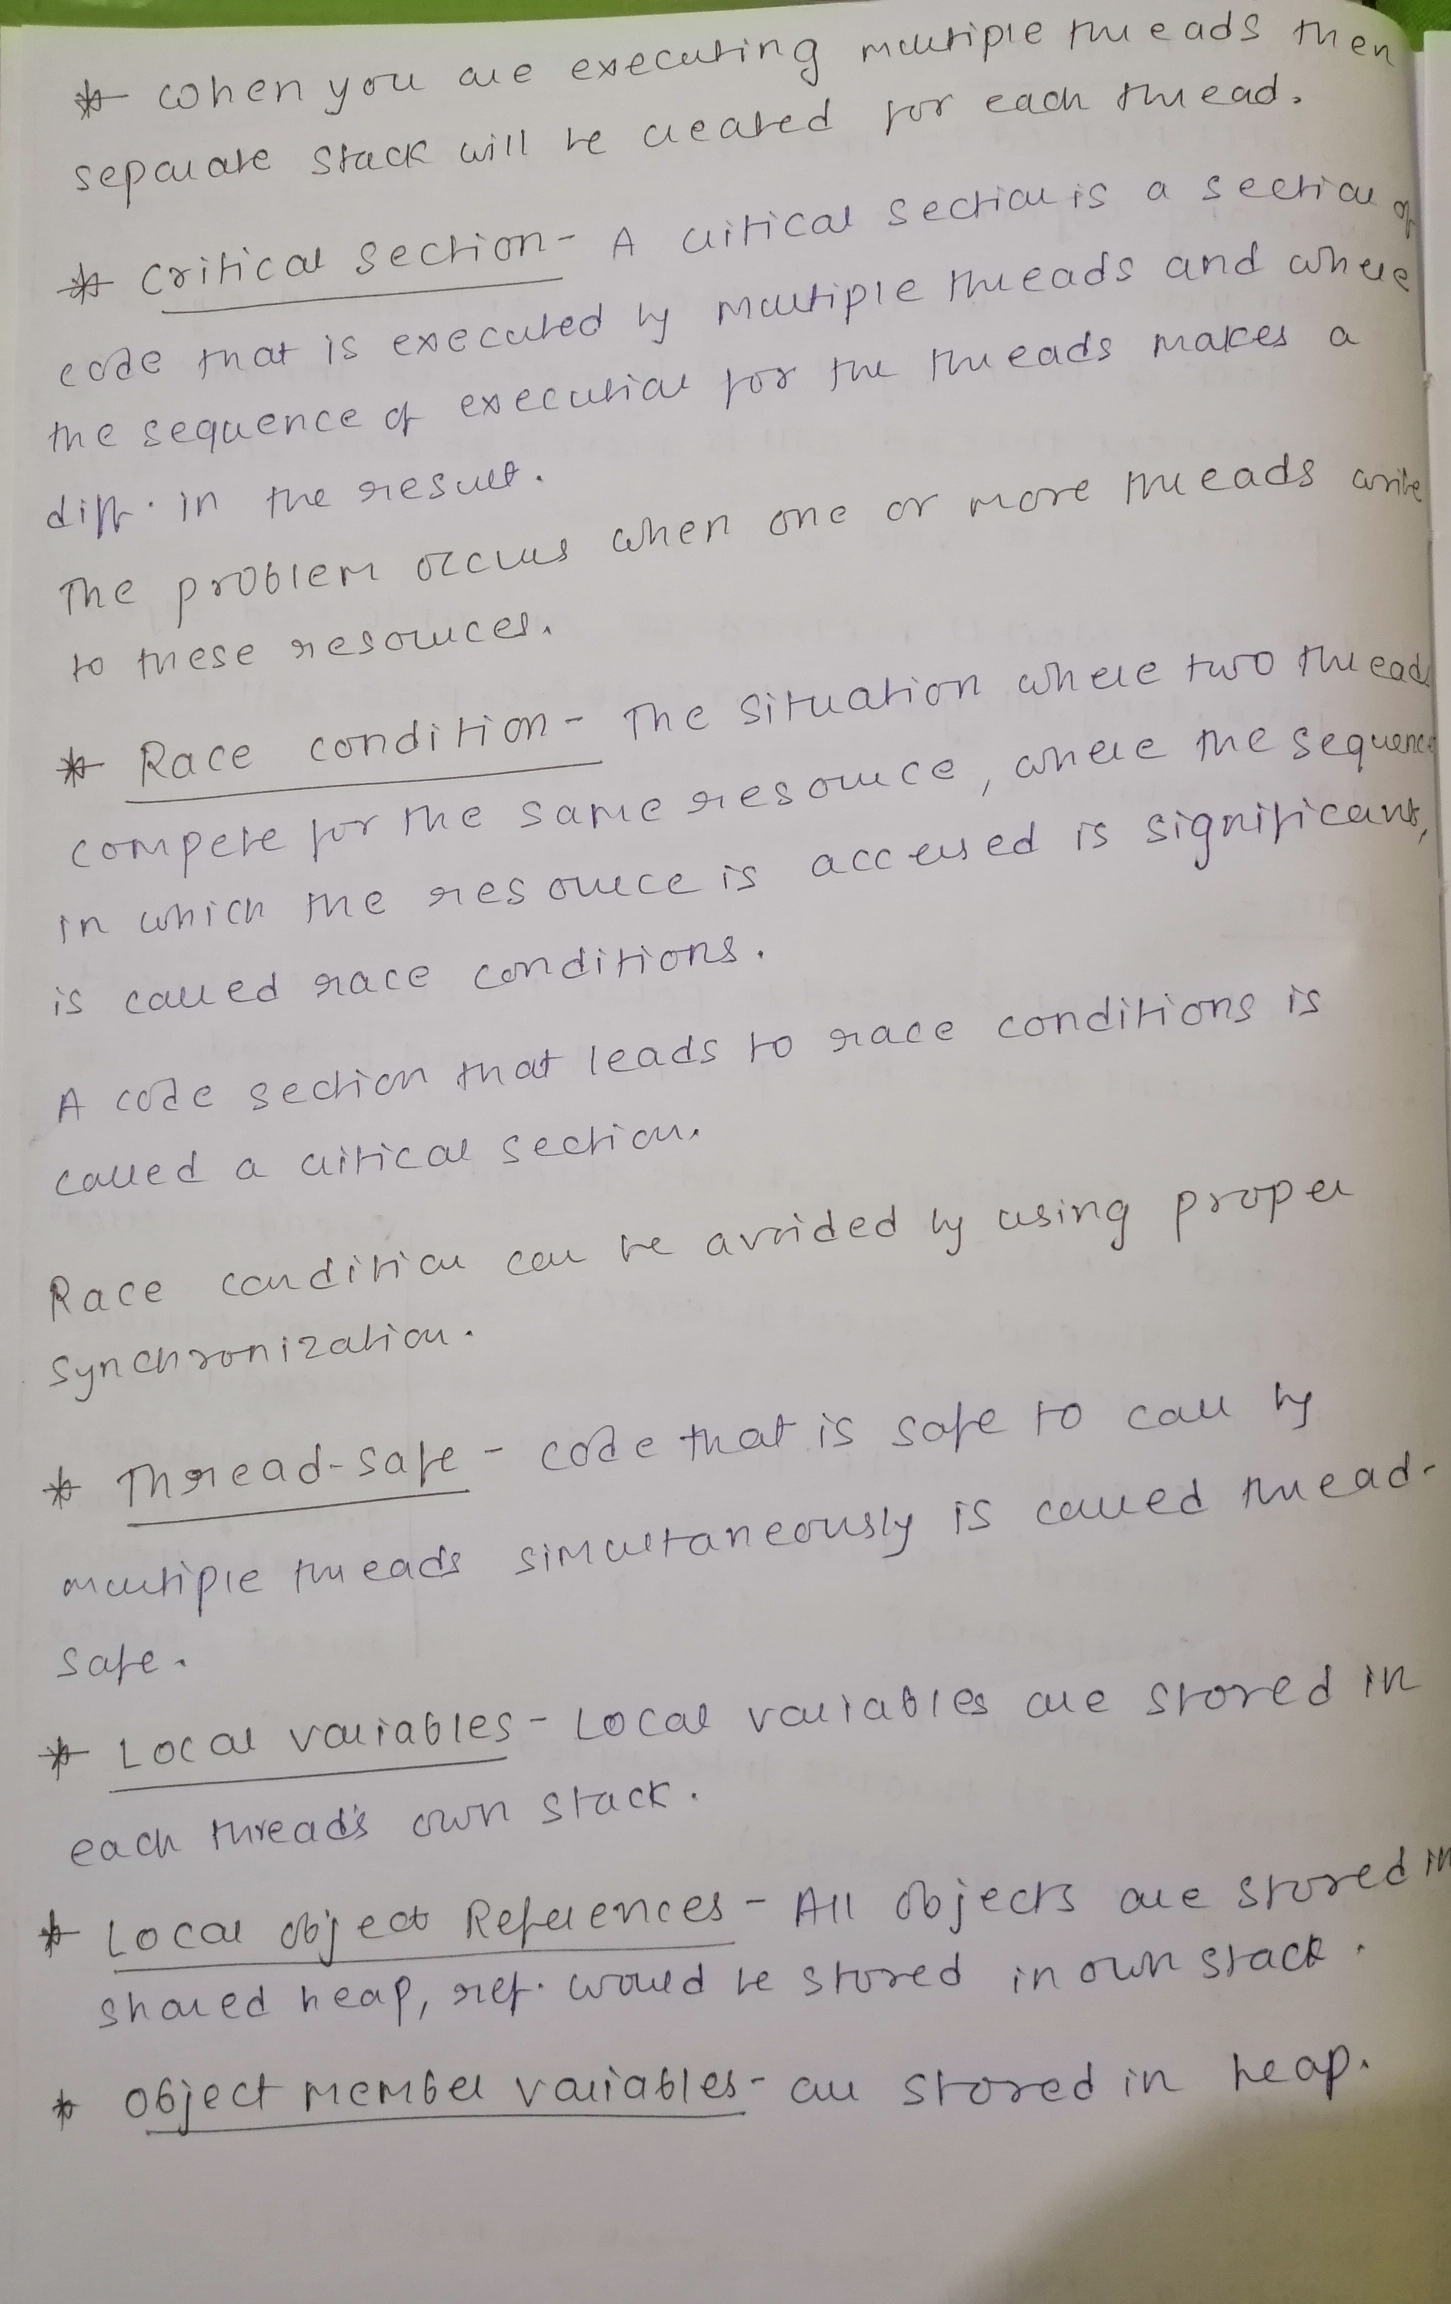 * When you are executing multiple threads then
separate stack will be created for each thread.
* Critical section - A critical section is a section of
code that is executed by multiple threads and where
the sequence of execution for the threads makes a
diff. in the result.
The problem occurs when one or more threads write
to these resources.
* Race condition - The situation where two threads
compete for the same resource, where the sequence
in which the resource is accessed is significant,
is called race conditions.
A code section that leads to race conditions is
called a critical section.
Race condition can be avoided by using proper
synchronization.
* Thread-safe - code that is safe to call by
multiple threads simultaneously is called thread-
safe.
* Local variables - Local variables are stored in
each thread's own stack.
* Local object References - All objects are stored in
shared heap, ref. would be stored in own stack.
* Object member variables - all stored in heap.